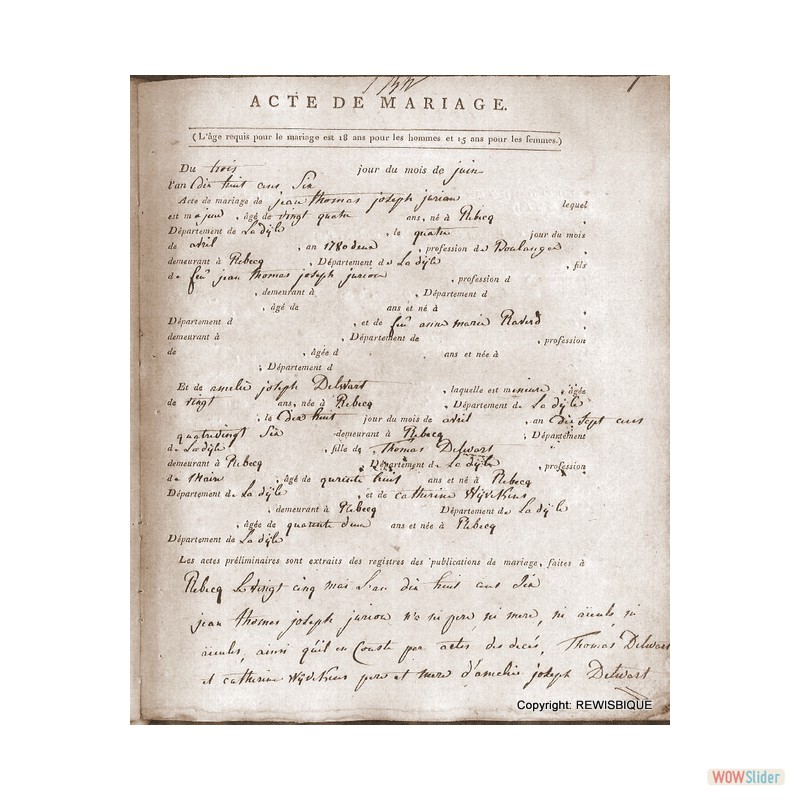 ACTE DE MARIAGE.
(L'âge requis pour le mariage est 18 ans pour les hommes et 15 ans pour les femmes.)
Du trois jour du mois de juin
l'an dix huit cens Six
Acte de mariage de jean thomas joseph jurion lequel
est majeur, âgé de vingt quatre ans, né à Rebecq
Département de La dijle, le quatre jour du mois
de avril, an 1780 deux, profession de Boulanger
demeurant à Rebecq, Département de La dijle, fils
de feu jean thomas joseph jurion, profession d
, demeurant à , Département d
, âgé de ans et né à
Département d , et de feu anne marie
demeurant à , Département de , profession
de , âgée d ans et née à
; Département d
Et de amelie joseph Delwart, laquelle est mineure, âgée
de vingt ans, née à Rebecq, Département de La dijle
, le dix huit jour du mois de avril, an dix sept cens
quatrevingt Six demeurant à Rebecq, Département
de La dijle, fille de Thomas Delwart
demeurant à Rebecq, Département de La dijle, profession
de , âgé de quarente huit ans et né à Rebecq
Département de La dijle, et de catherine Wijvekens
, demeurant à Rebecq Département de La dijle
, âgée de quarente deux ans et née à Rebecq
Département de La dijle
Les actes préliminaires sont extraits des registres des publications de mariage, faites à
Rebecq Le vingt cinq mai L'an dix huit cent Six
jean thomas joseph jurion n'a ni pere, ni mere, ni aieuls, ni
aieules, ainsi qu'il en Conste par actes des decés, Thomas Delwart
et catherine Wijvekens pere et mere d'amelie joseph Delwart
Copyright: REWISBIQUE
WOWSlider